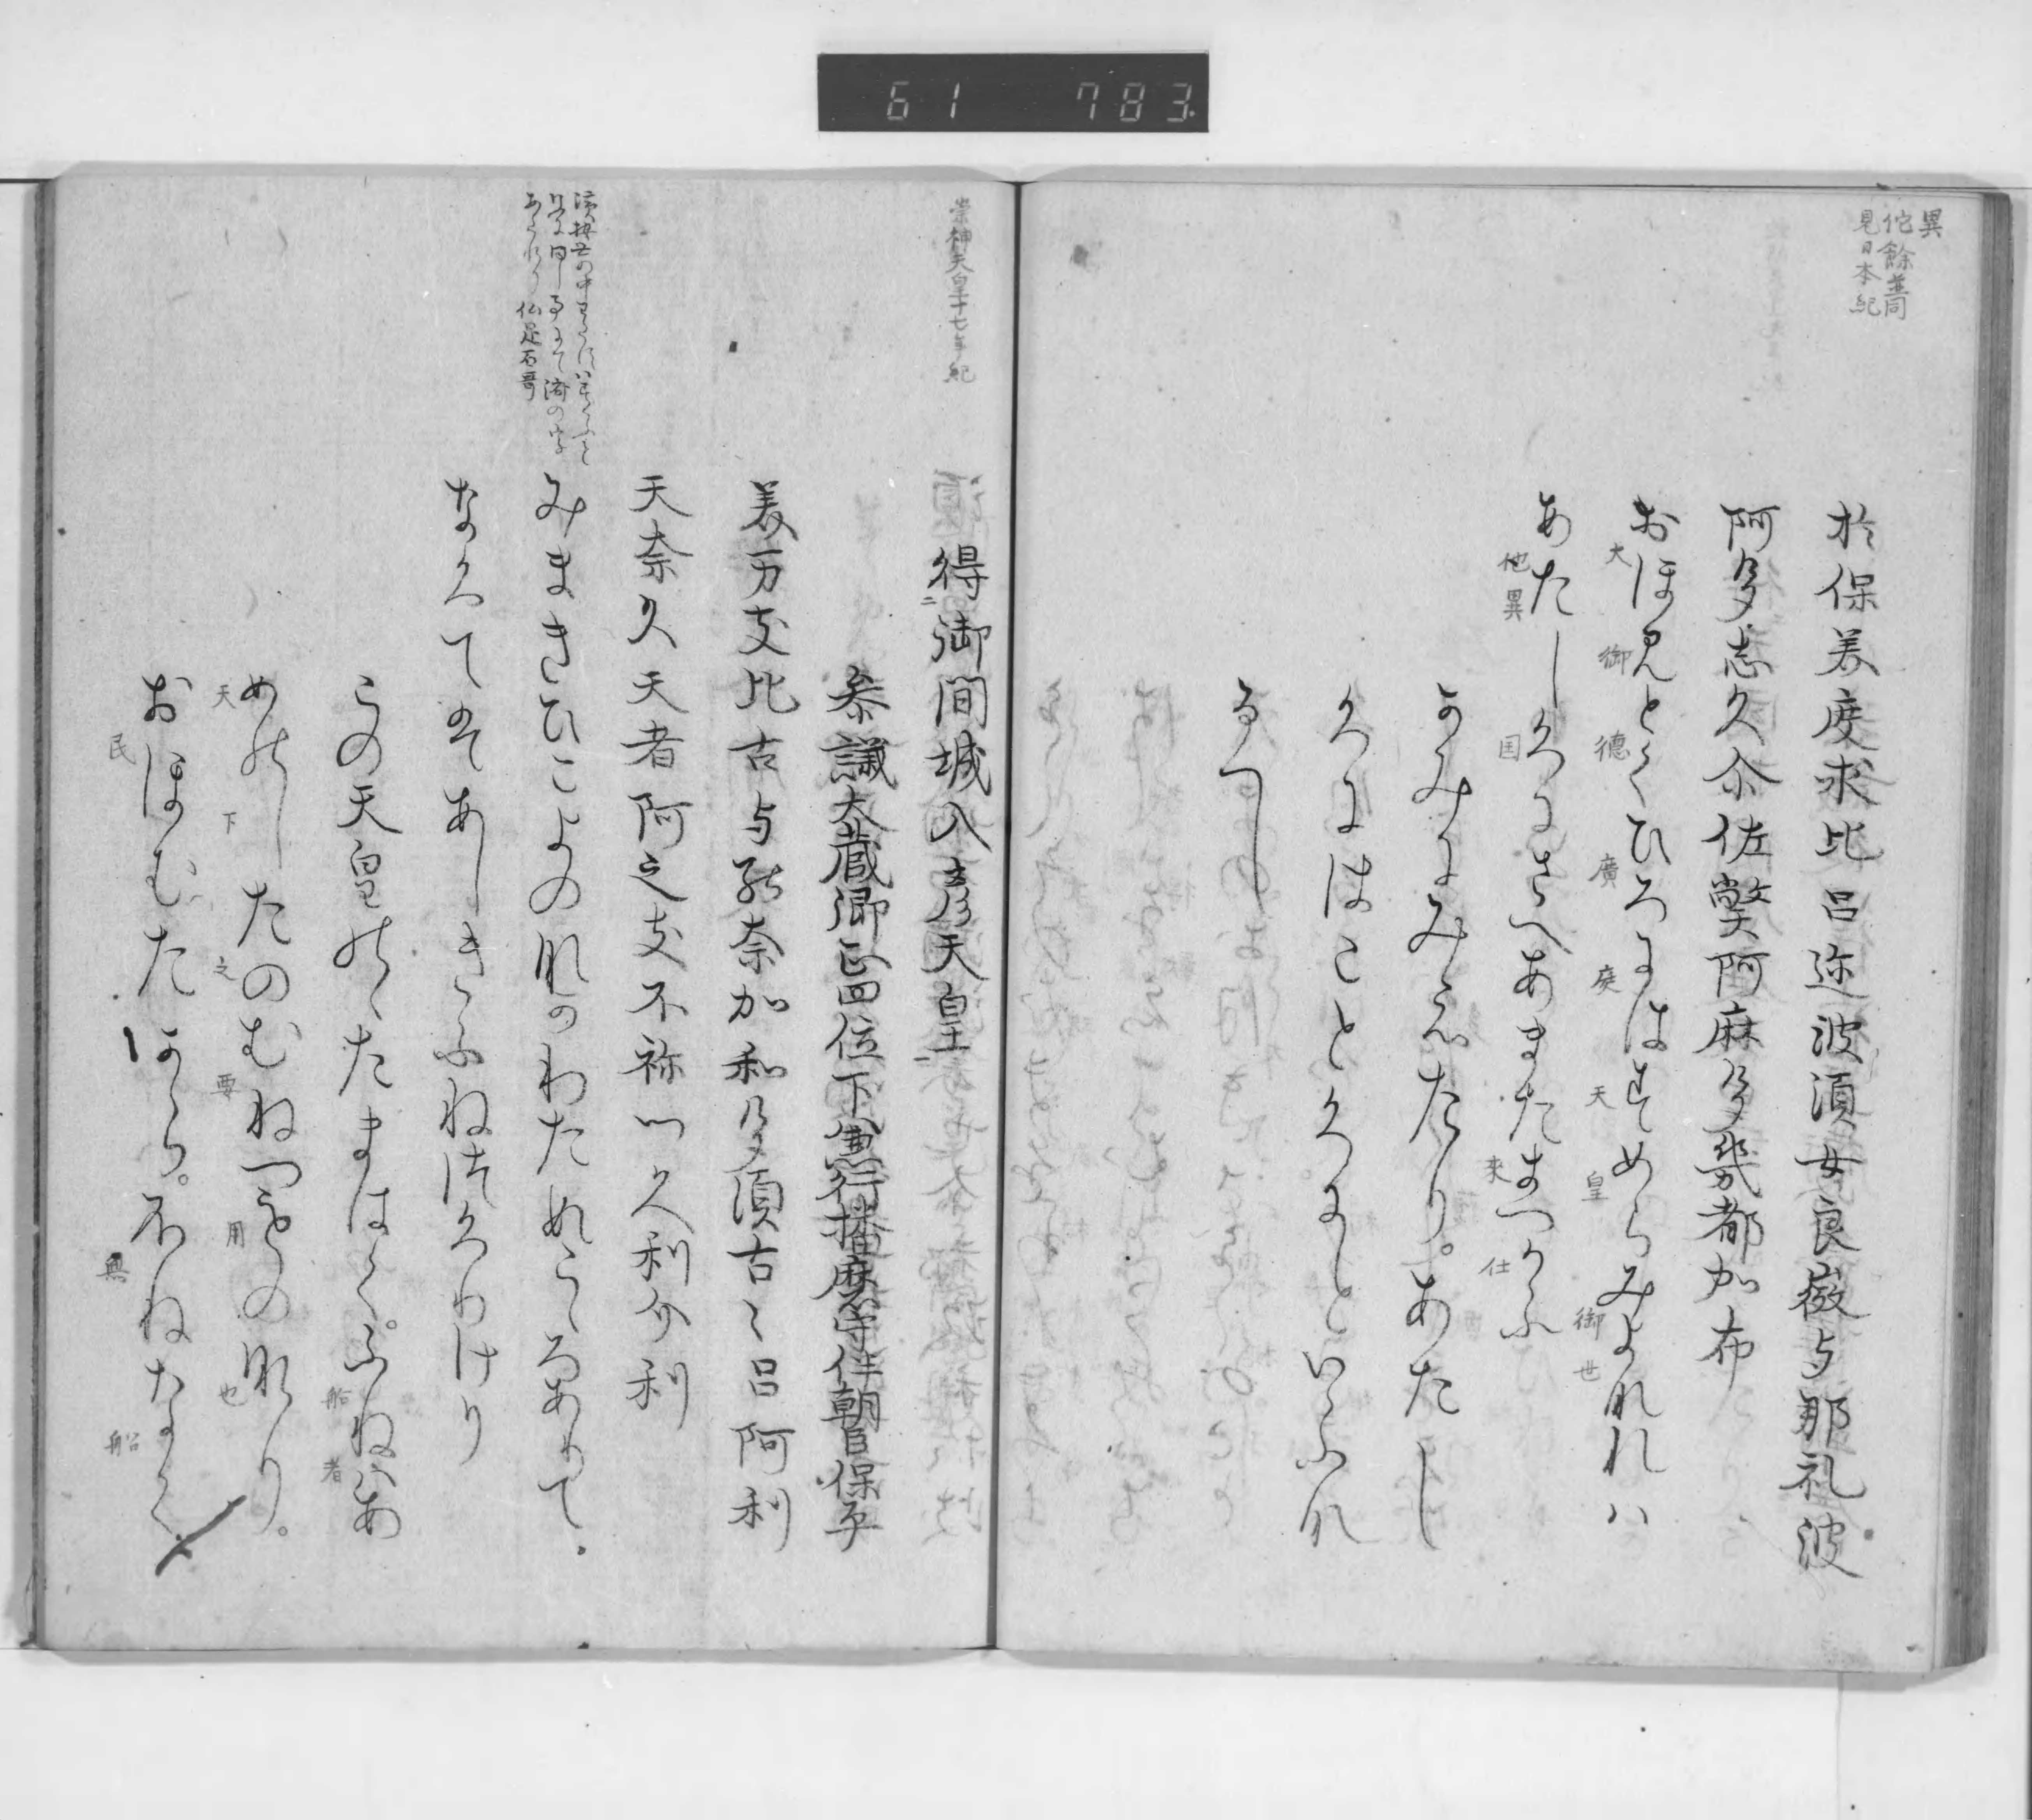 61 783.
異
佗餘並同
見日本紀
於保美度求比呂迩波須女良嶶与那礼波
阿多志久尒佐弊阿麻多幾都加布
おほ見とくひろにはすめらみよなれハ
大 御 德 廣 庭 天 皇 御 世
あたしくにさへあまたまつかふ
他異 国 来 仕
かみにみえたり。あたし
くにはことくにといふな
るへし
崇神天皇十七年紀
得御間城入彦天皇
参議大蔵卿正四位下兼行播磨守伴朝臣保平
美万支比古与能奈加和乃多須古〻呂阿利
天奈久天者阿之支不祢川久利介利
みまきひこよのなかわたすこゝろありて
なくてはあしきふねつくりけり
この天皇のゝたまはく。ふねハあ
船 者
めのしたのむねつものなり。
天 下 之 要 用 也
おほむたから。ふねなく
民 無 船
仏足石哥